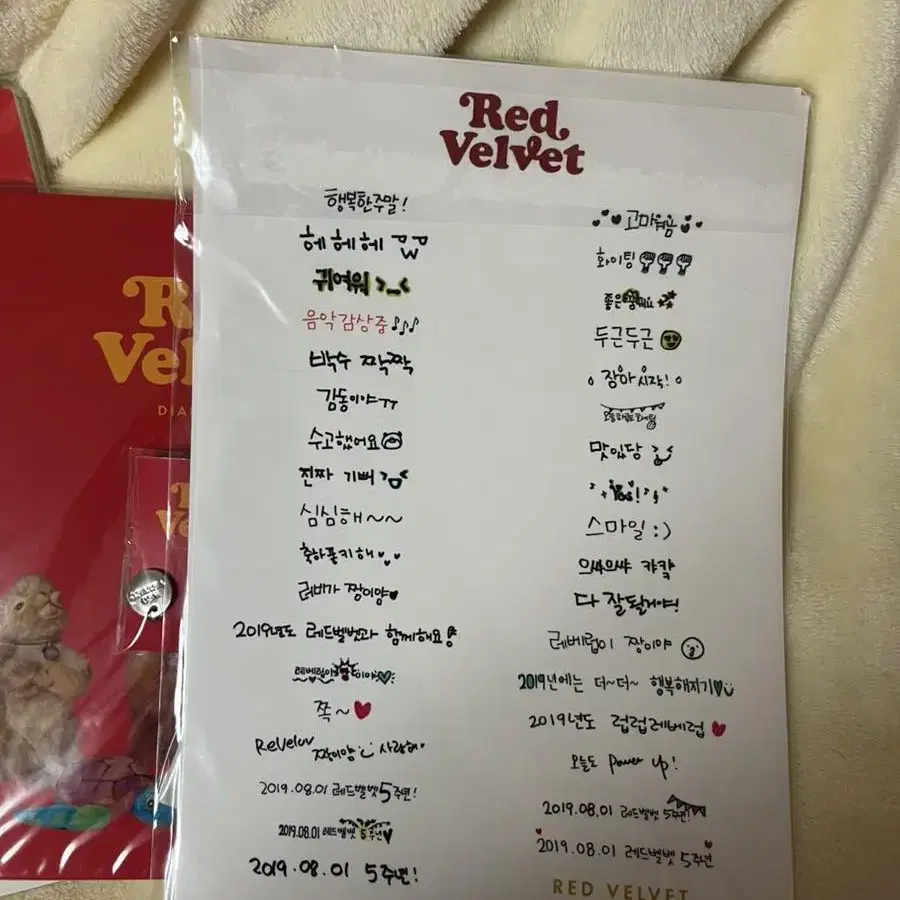 Red
Velvet
행복한주말!
헤헤헤
귀여워 >_<
음악감상중♪♪♪
박수 짝짝
감동이야ㅠㅠ
수고했어요
진짜 기뻐
심심해~~
축하풍키해
레베가 짱이양♥
2019년도 레드벨벳과 함께해요
레베럽이 이야♡
쪽~♥
ReVeluv 짱이양 사랑해
2019.08.01 레드벨벳 5주년!
2019.08.01 레드벨벳 5주년♥
2019.08.01 5주년!
고마워용
화이팅
좋은 해요
두근두근
장마시작!
맛있당
Yes!
스마일 :)
으쌰으쌰 캬캬
다 잘될거야!
레베럽이 짱이야
2019년에는 더~더~ 행복해지기♥
2019년도 럽럽레베럽 ♥
오늘도 Power Up!
2019.08.01 레드벨벳 5주년!
2019.08.01 레드벨벳 5주년
RED VELVET
R
Vel
DIA